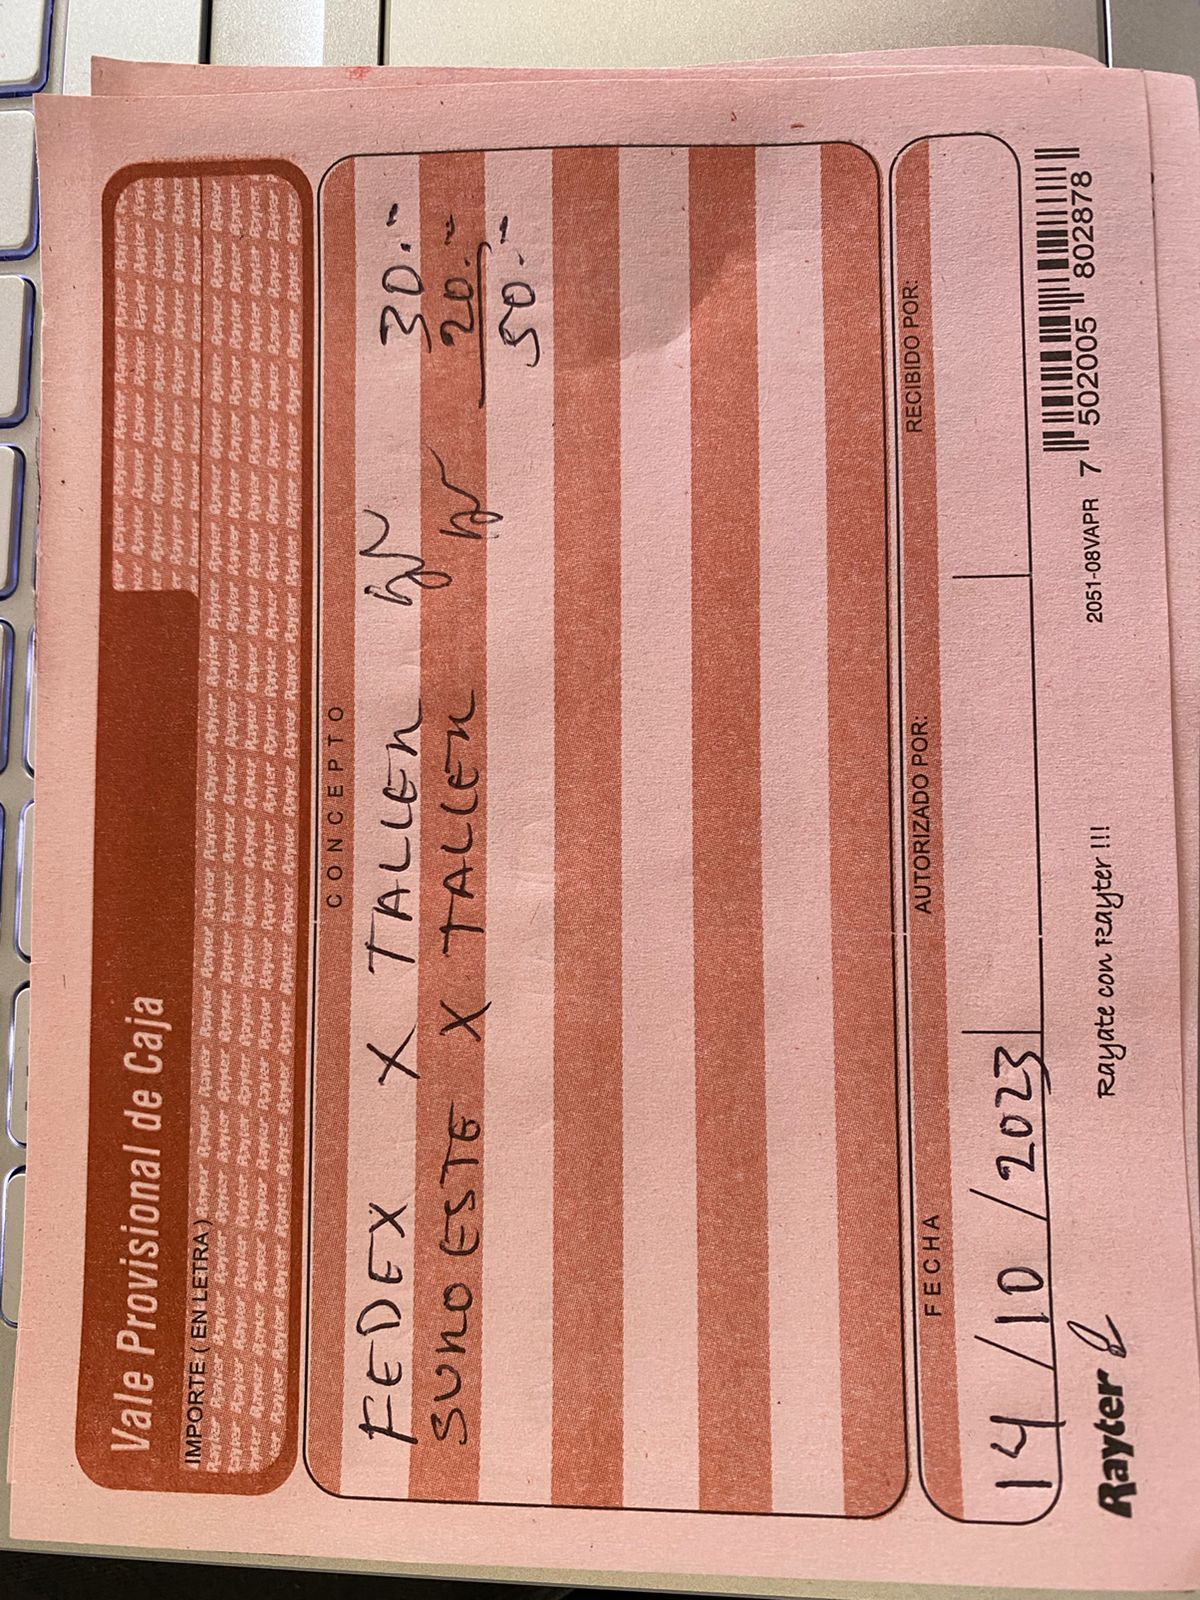 Vale Provisional de Caja
IMPORTE: ( EN LETRA )
CONCEPTO
FEDEX X TALLER 30.-
SUROESTE X TALLER 20.-
50.-
FECHA
AUTORIZADO POR:
RECIBIDO POR:
14/10/2023
Rayter
Rayate con Rayter !!!
2051-08VAPR
7 502005 802878